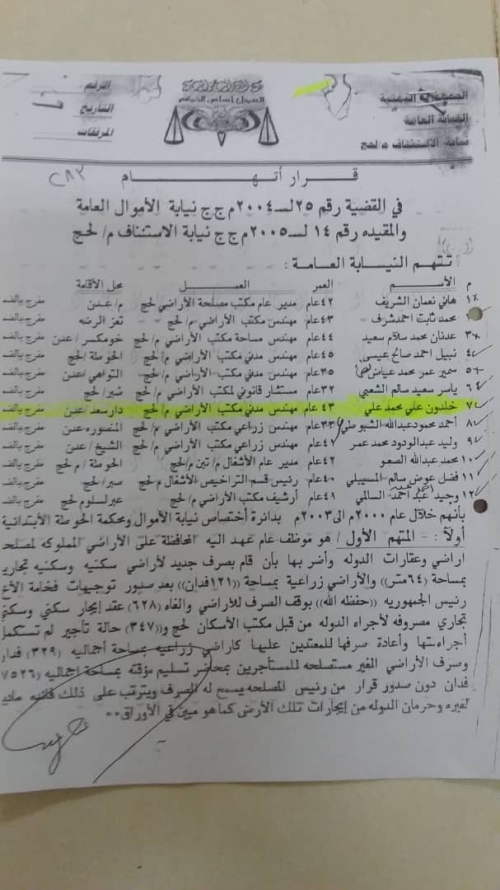 الجمهورية اليمنية
النيابة العامة
نيابة الاستئناف م/لحج
العدل أساس الحكم
الرقم
التاريخ
المرفقات
٢٨٣
قرار أتهام
في القضية رقم ٢٥ لسـ٢٠٠٤م ج ج نيابة الأموال العامة
والمقيده رقم ١٤ لسـ٢٠٠٥م ج ج نيابة الاستئناف م/ لحج
تتهم النيابة العامة :
م الأســم العمر العمــل محل الأقامة
١* هاني نعمان الشريف ٤٢عام مدير عام مكتب مصلحة الأراضي لحج م/عدن مفرج بالضـ
محمد ثابت احمدشرف ٤٣عام مهندس مكتب الأراضي م/لحج تعز الرضه مفرج بالضـ
٣* عدنان محمد سلام سعيد ٤٤عام مهندس مساحة مكتب الأراضي م/لحج خومكسر/عدن مفرج بالضـ
٤ نبيل احمد صالح عيسى ٤٥عام مهندس مدني مكتب الأراضي م/لحج الحوطة/لحج مفرج بالضـ
٥* سمير عمر محمد عياض ٤٥عام مهندس مدني مكتب الأراضي م/لحج التواهي/عدن مفرج بالضـ
٦ ياسر سعيد سالم الشعبي ٣٢عام مستشار قانوني لمكتب الأراضي م/لحج صبر/لحج مفرج بالضـ
٧ خلدون علي محمد علي ٤٣عام مهندس مدني مكتب الأراضي م/لحج دارسعد/عدن مفرج بالضـ
٨ أحمد محمودعبدالله الشبوطي ٣٣عام مهندس زراعي مكتب الأراضي م/لحج المنصوره/عدن مفرج بالضـ
٩ وليد عبدالودود محمد عمر ٤٧عام مهندس زراعي مكتب الأراضي م/لحج الشيخ /عدن مفرج بالضـ
١٠ محمد عبدالله الصعو ٤٢عام مدير عام الأشغال م/تبن م/لحج الحوطة /م لحج مفرج بالضـ
١١ فضل عوض سالم المسيبلي ٤٠عام رئيس قسم التراخيص الأشغال م/لحج صبر/لحج مفرج بالضـ
١٢ وحيد عبد أحمد السالمي ٤١عام أرشيف مكتب الأراضي م/لحج عبرلسلوم لحج مفرج بالضـ
بأنهم خلال عام ٢٠٠٠م الى٢٠٠٣م بدائرة أختصاص نيابة الأموال ومحكمة الحوطة الأبتدائية
أولاً :- المتهم الأول / هو موظف عام عهد اليه المحافظة على الأراضي المملوكه لمصلحة
اراضي وعقارات الدوله وأضر بها بأن قام بصرف جديد لأراضي سكنيه وسكنيه تجاريه
بمساحة (٦٤متر) والأراضي زراعية بمساحة (١٢١فدان) بعد صدور توجيهات فخامة الأخ
رئيس الجمهوريه ((حفظه الله)) بوقف الصرف للأراضي والغاء (٦٢٨) عقد إيجار سكني وسكني
تجاري مصروفه لأجراء الدوله من قبل مكتب الأسكان لحج و(٣٤٧) حالة تأجير لم تستكمل
أجراءتها وأعادة صرفها للمعتدين عليها كأراضي زراعيه بمساحة أجماليه (٣٢٩) فدان
وصرف الأراضي الغير مستصلحه للمستأجرين بمحاضر تسليم مؤقته بمساحة اجماليه (٧٥٢٦)
فدان دون صدور قرار من رئيس المصلحه يسمح له بالصرف ويترتب على ذلك فائده ماديه
لغيره وحرمان الدوله من إيجارات تلك الأرض كما هو مبين في الأوراق**